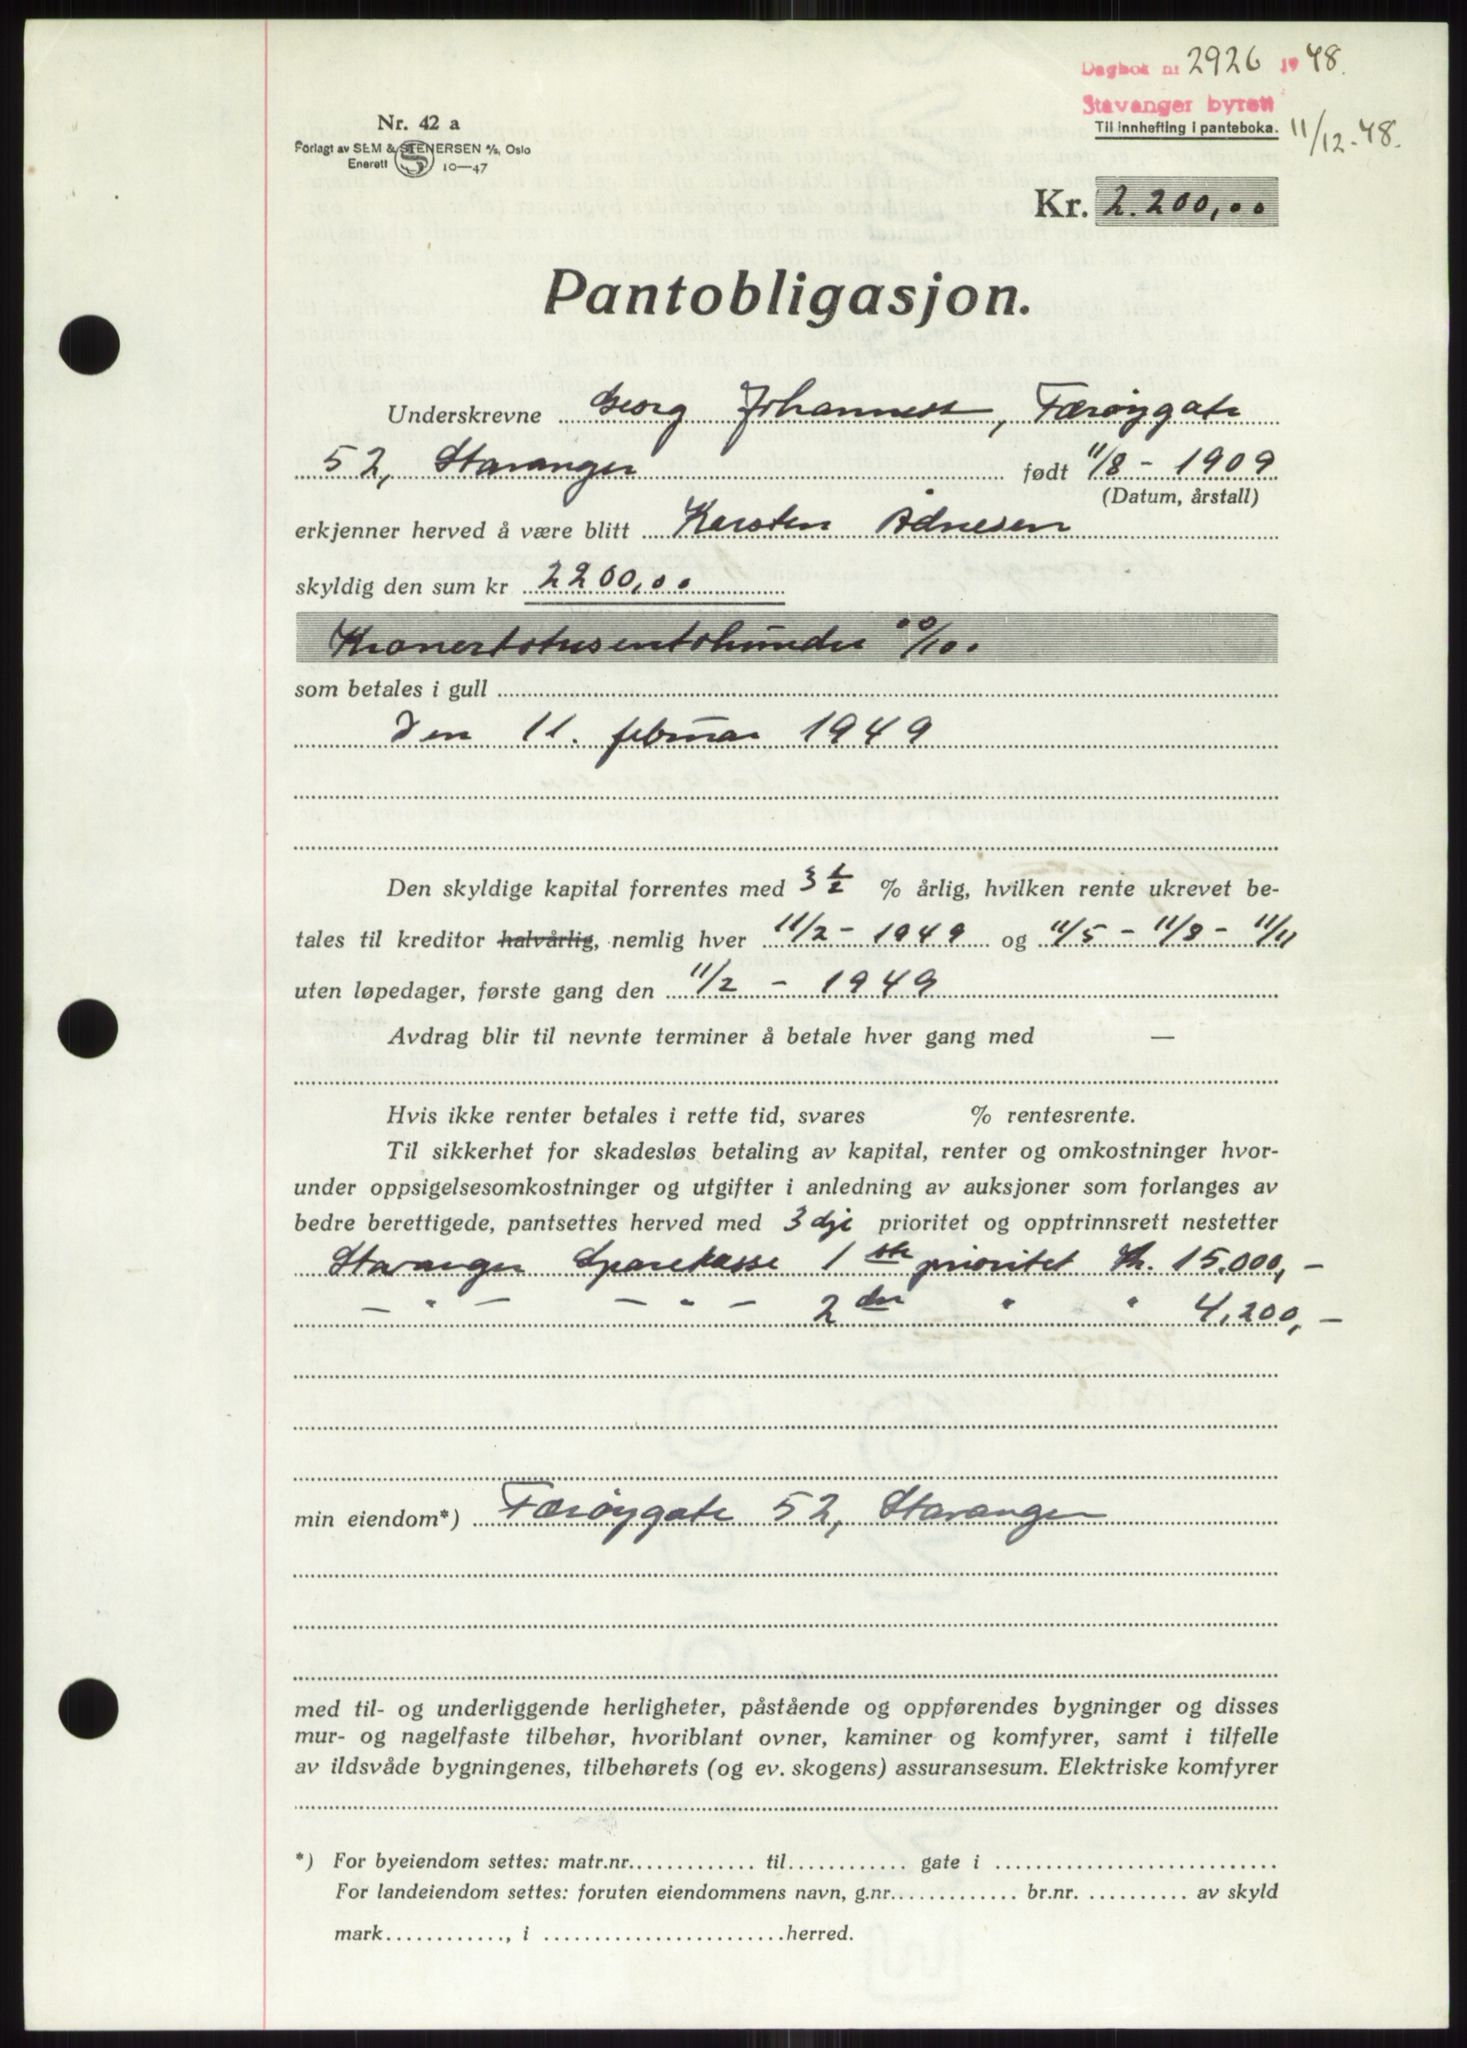 Dagbok nr 2926 1948.
Stavanger byrett
Til innhefting i panteboka. 11/12-48.
Nr. 42 a
Forlagt av SEM & STENERSEN A/S, Oslo
Enerett S 10—47
Kr. 2.200,00
Pantobligasjon.
Underskrevne Georg Johannessen, Færøygate
52, Stavanger født 11/8 - 1909
(Datum, årstall)
erkjenner herved å være blitt Karsten Ådnesen
skyldig den sum kr 2200,00
Kronertotusentohundre 00/10.
som betales i gull
Den 11. februar 1949
Den skyldige kapital forrentes med 3 1/2 % årlig, hvilken rente ukrevet be-
tales til kreditor halvårlig, nemlig hver 11/2 - 1949 og 11/5 - 11/8 - 11/11
uten løpedager, første gang den 11/2 - 1949
Avdrag blir til nevnte terminer å betale hver gang med —
Hvis ikke renter betales i rette tid, svares % rentesrente.
Til sikkerhet for skadesløs betaling av kapital, renter og omkostninger hvor-
under oppsigelsesomkostninger og utgifter i anledning av auksjoner som forlanges av
bedre berettigede, pantsettes herved med 3 dje prioritet og opptrinnsrett nestetter
Stavanger Sparekasse 1 ste prioritet Kr. 15.000,-
- " - - " - 2 den " " 4,200,-
min eiendom*) Færøygate 52, Stavanger
med til- og underliggende herligheter, påstående og oppførendes bygninger og disses
mur- og nagelfaste tilbehør, hvoriblant ovner, kaminer og komfyrer, samt i tilfelle
av ildsvåde bygningenes, tilbehørets (og ev. skogens) assuransesum. Elektriske komfyrer
*) For byeiendom settes: matr.nr. til gate i
For landeiendom settes: foruten eiendommens navn, g.nr. br.nr. av skyld
mark , i herred.